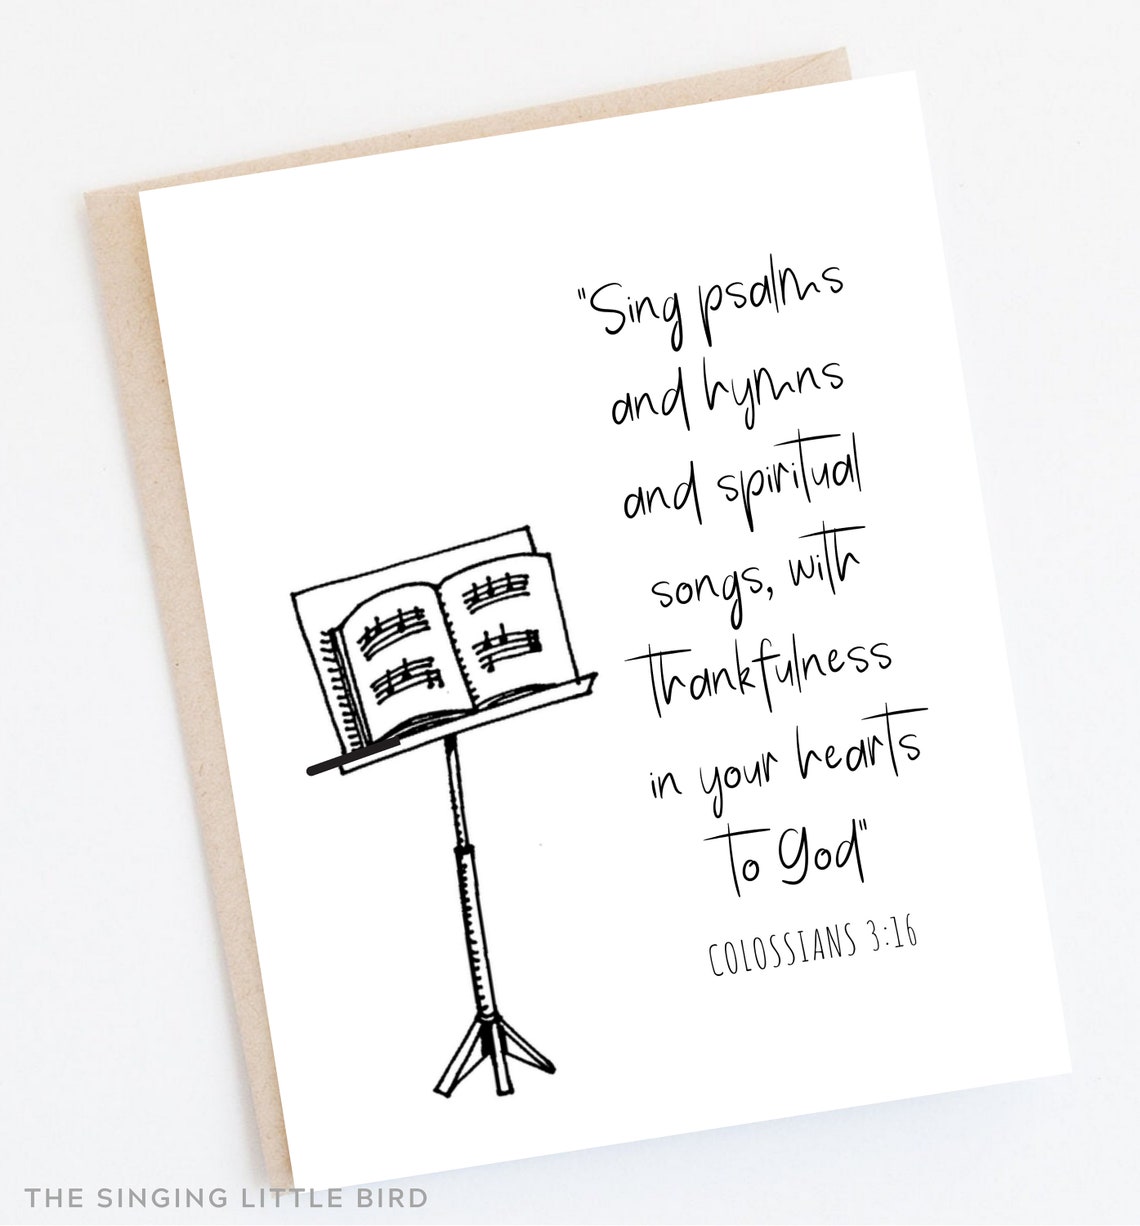 "Sing psalms
and hymns
and spiritual
songs, with
thankfulness
in your hearts
to God"
COLOSSIANS 3:16
THE SINGING LITTLE BIRD